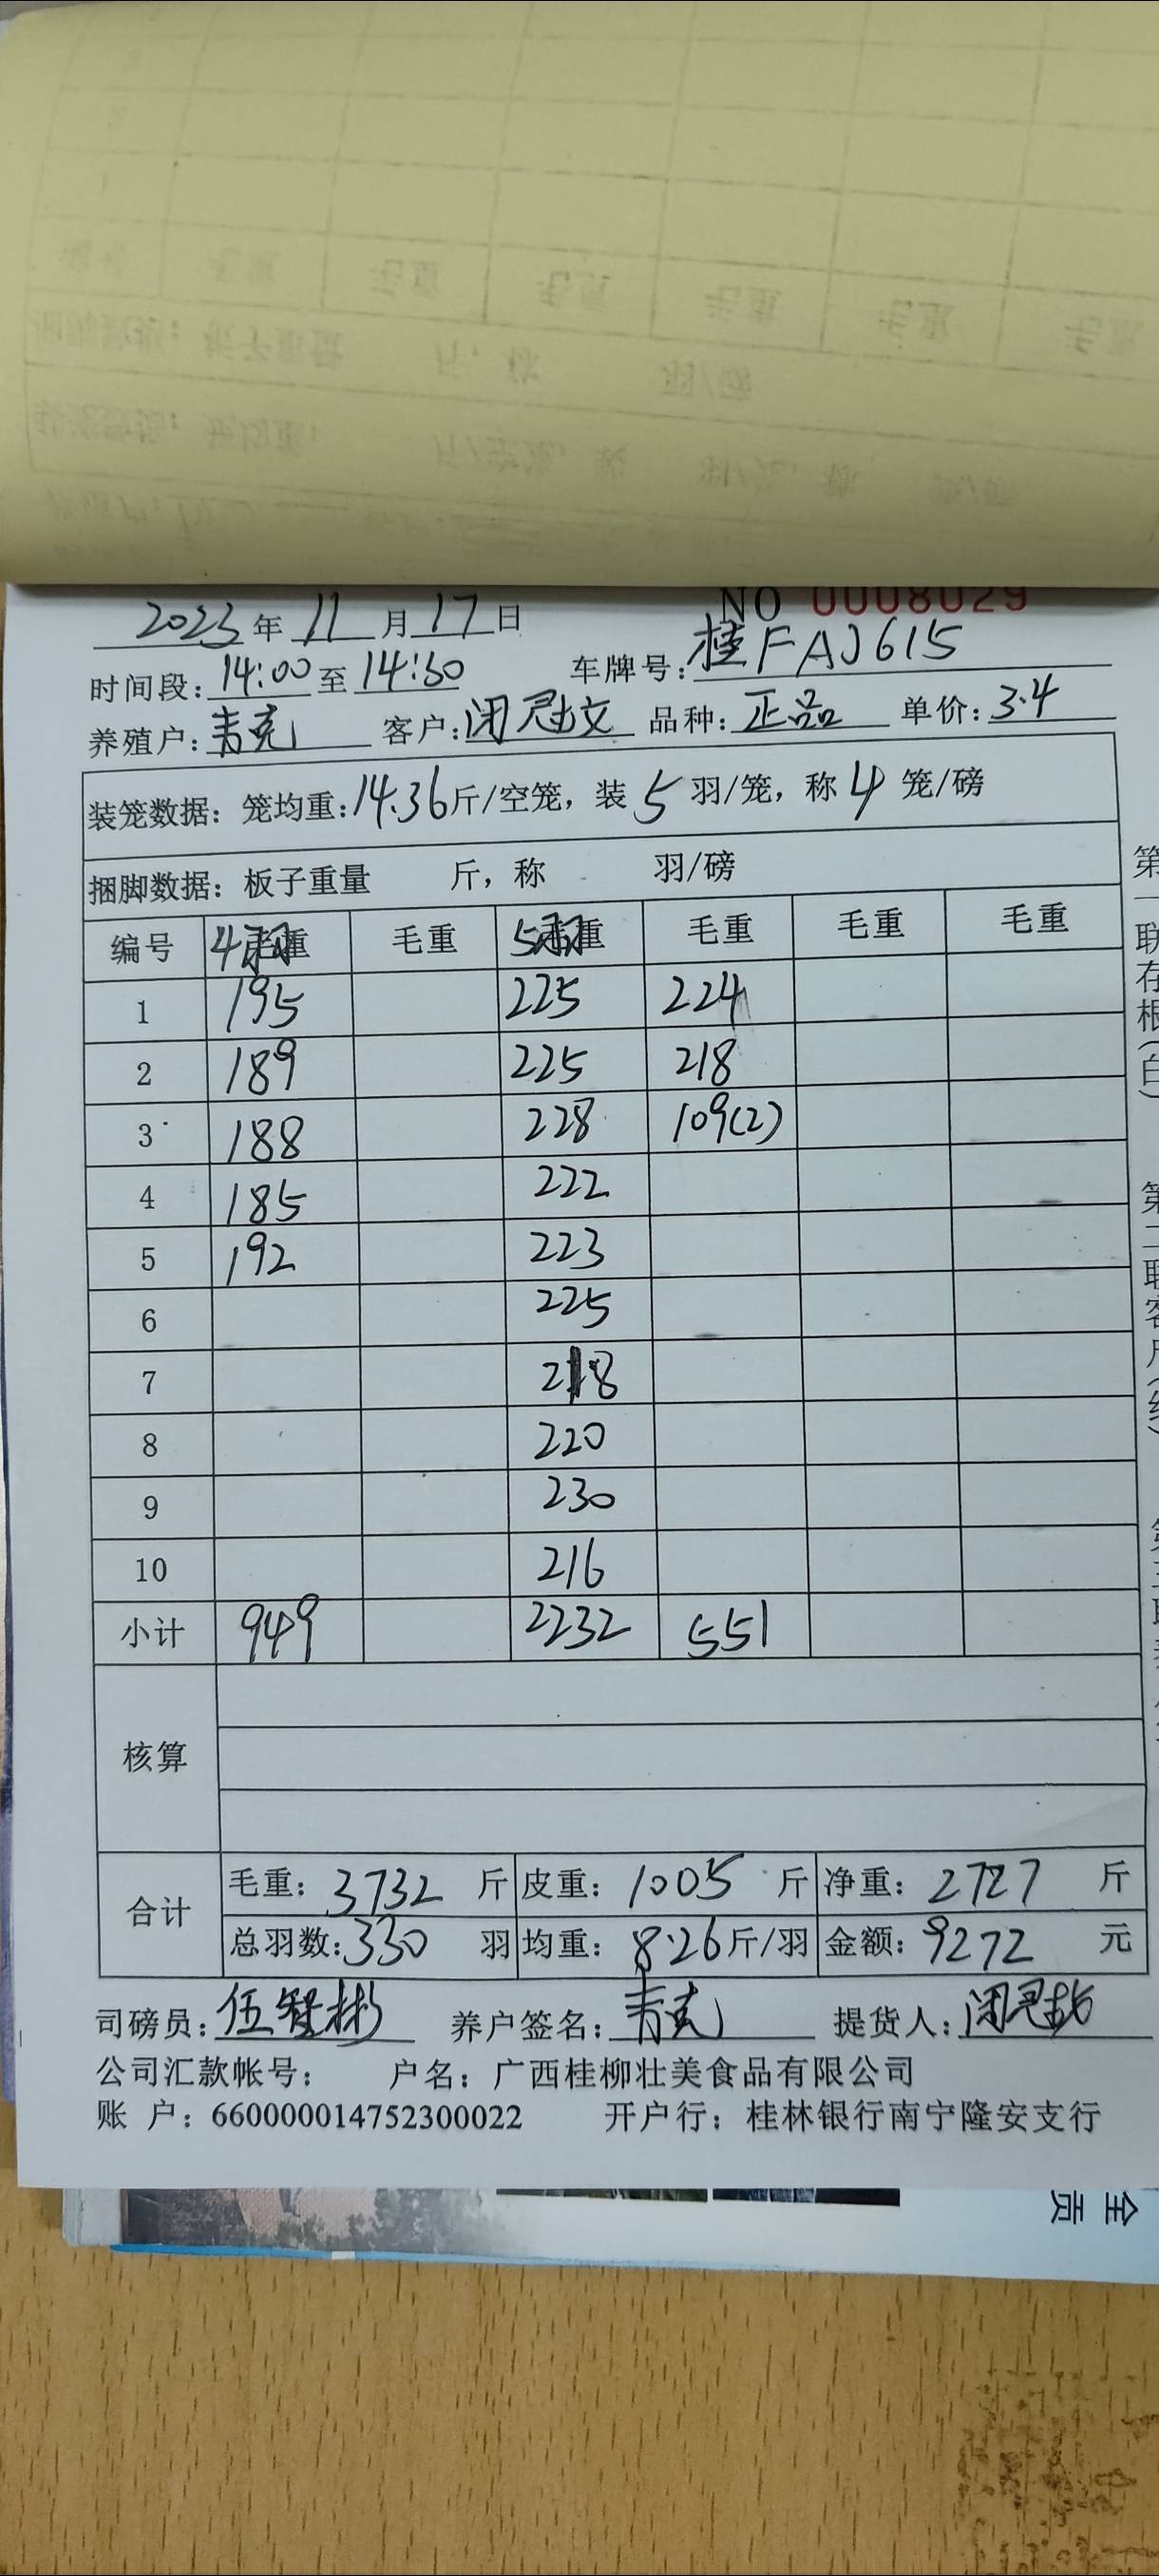 NO 0008029
2023年11月17日
时间段:14:00至14:30 车牌号:桂FAJ615
养殖户: 客户: 品种:正品 单价:3.4
装笼数据:笼均重:14.36斤/空笼,装5羽/笼,称4笼/磅
捆脚数据:板子重量 斤,称 羽/磅
编号 4羽 毛重 5羽 毛重 毛重 毛重
1 195 225 224
2 189 225 218
3 188 228 109(2)
4 185 222
5 192 223
6 225
7 218
8 220
9 230
10 216
小计 949 2232 551
核算
合计 毛重:3732斤 皮重:1005斤 净重:2727斤
总羽数:330羽 均重:8.26斤/羽 金额:9272元
司磅员:伍智彬 养户签名: 提货人:
公司汇款帐号: 户名:广西桂柳壮美食品有限公司
账 户:660000014752300022 开户行:桂林银行南宁隆安支行
第一联存根(白)
全 页